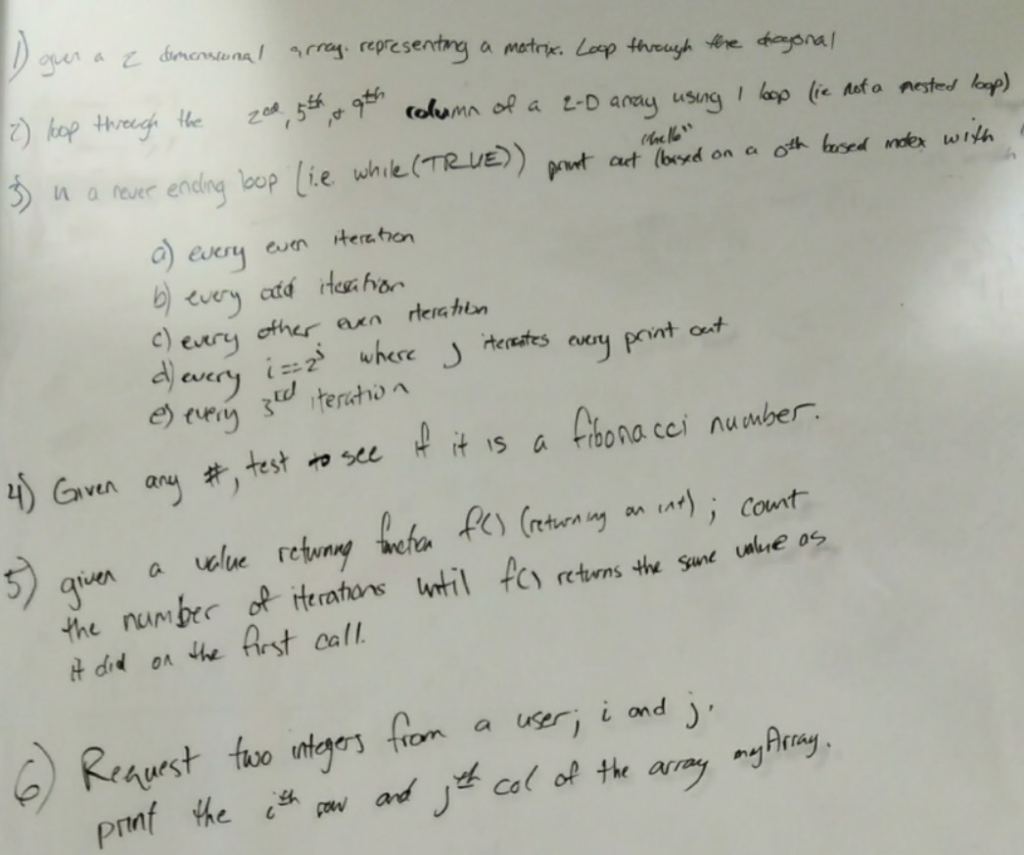 1) given a 2 dimensional array. representing a matrix. Loop through the diagonal
2) loop through the 2nd, 5th, & 9th column of a 2-D array using 1 loop (ie not a nested loop)
"hello"
3) in a never ending loop (i.e. while(TRUE)) print out (based on a 0th based index with
a) every even iteration
b) every odd iteration
c) every other even iteration
d) every i==2^j where j iterates every print out
e) every 3rd iteration
4) Given any #, test to see if it is a fibonacci number.
5) given a value returning function f() (returning an int); count
the number of iterations until f() returns the same value as
it did on the first call.
6) Request two integers from a user; i and j.
print the ith row and jth col of the array myArray.